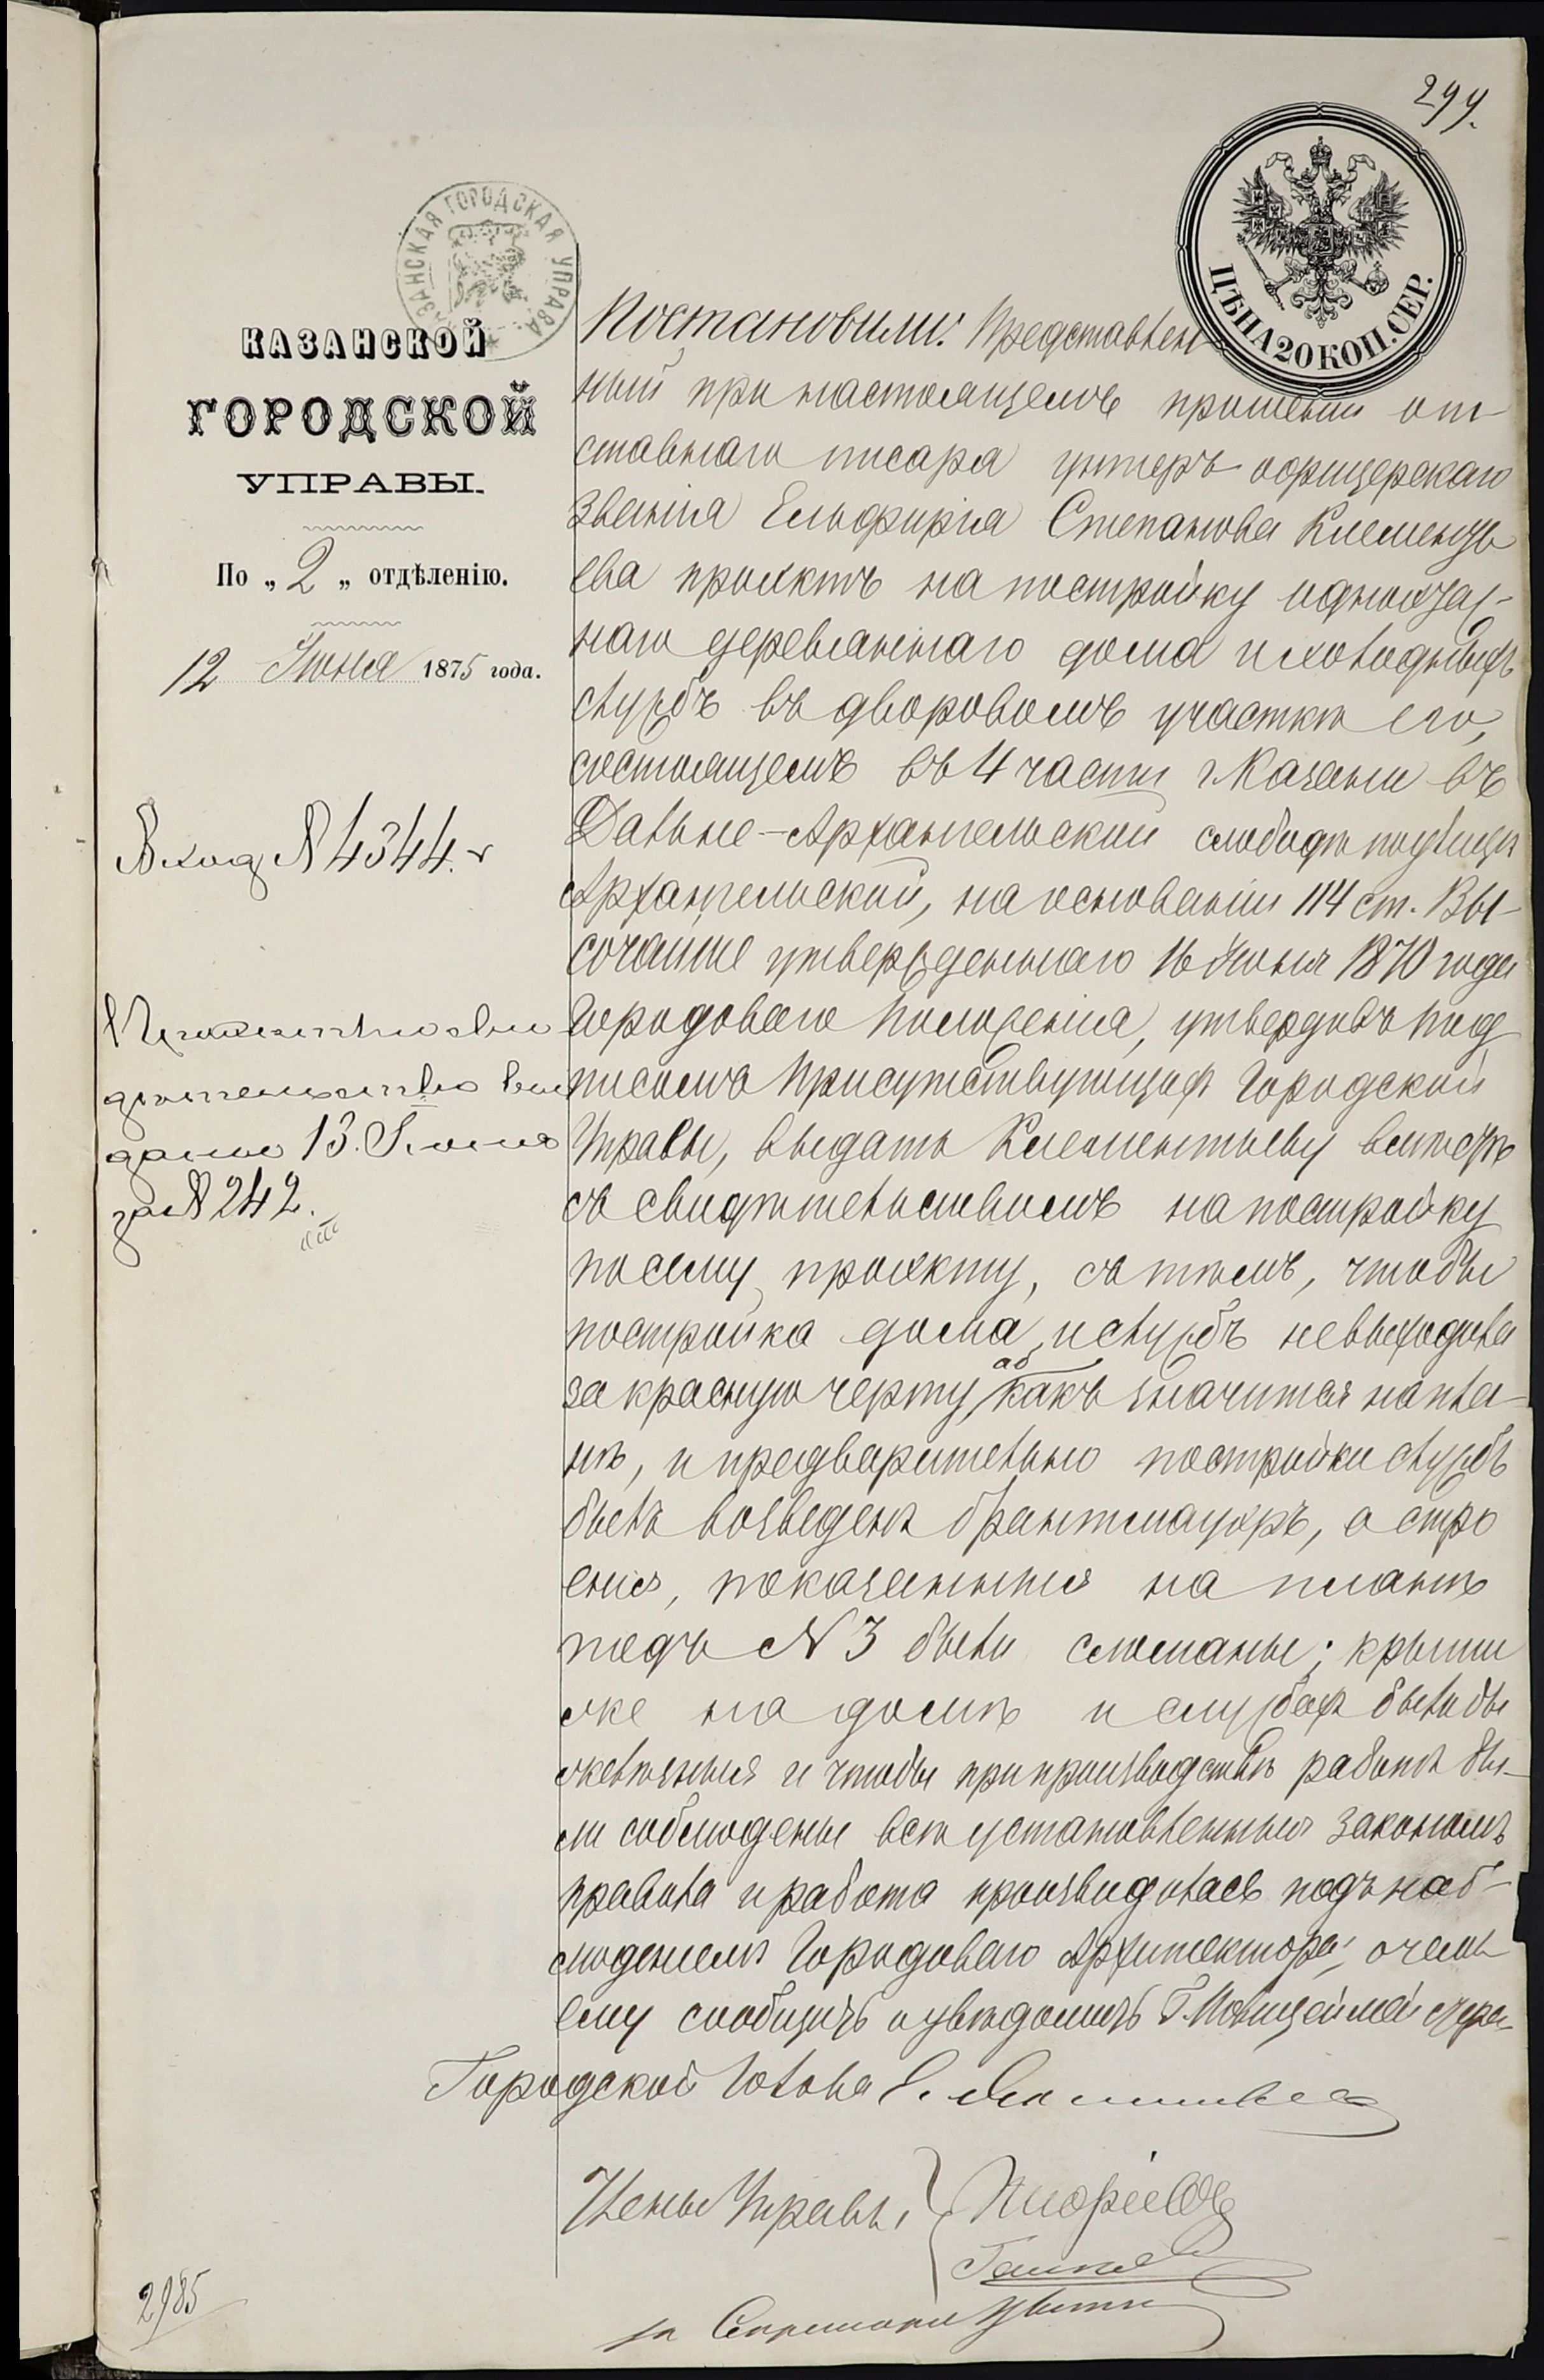 299.
ЦѢНА 20 КОП. СЕР.
КАЗАНСКАЯ ГОРОДСКАЯ УПРАВА
КАЗАНСКОЙ
ГОРОДСКОЙ
УПРАВЫ.
По „2„ отдѣленію.
12 Іюня 1875 года.
Вход № 4344.
дано 13. Іюня
за № 242.
Постановили: Представлен
ный при настоящемъ прошеніи от-
ставнаго писаря унтеръ-офицерскаго
званія Степанова Клементь
ева проэктъ на постройку одноэтаж-
наго деревяннаго дома и холодныхъ
службъ въ дворовомъ участкѣ его,
состоящемъ въ 4 части г Казани въ
Дальне-Архангельской слободѣ по улицѣ
Архангельской, на основаніи 114 ст. Вы-
сочайше утвержденнаго 16 Іюня 1870 года
Городоваго Положенія, утвердивъ под
писомъ Присутствующихъ Городской
Управы, выдать Клементьеву вмѣстѣ
съ свидѣтельствомъ на постройку
по сему проэкту, съ тѣмъ, чтобы
постройка дома и службъ не выходила
за красную черту, аб какъ значится на пла-
нѣ, и предварительно постройки службъ
былъ возведенъ брантмауэръ, а стро
енія, показанныя на планѣ
подъ № 3 были сломаны; крыши
же на домѣ и службахъ были бы
желѣзныя и чтобы при производствѣ работъ бы-
ли соблюдены всѣ установленныя закономъ
правила и работа производилась подъ наб-
люденіемъ Городоваго Архитектора, о чемъ
ему сообщить и увѣдомить Г. Полицеймейстера
Городской Голова
Члены Управы,
за Секретаря
2985